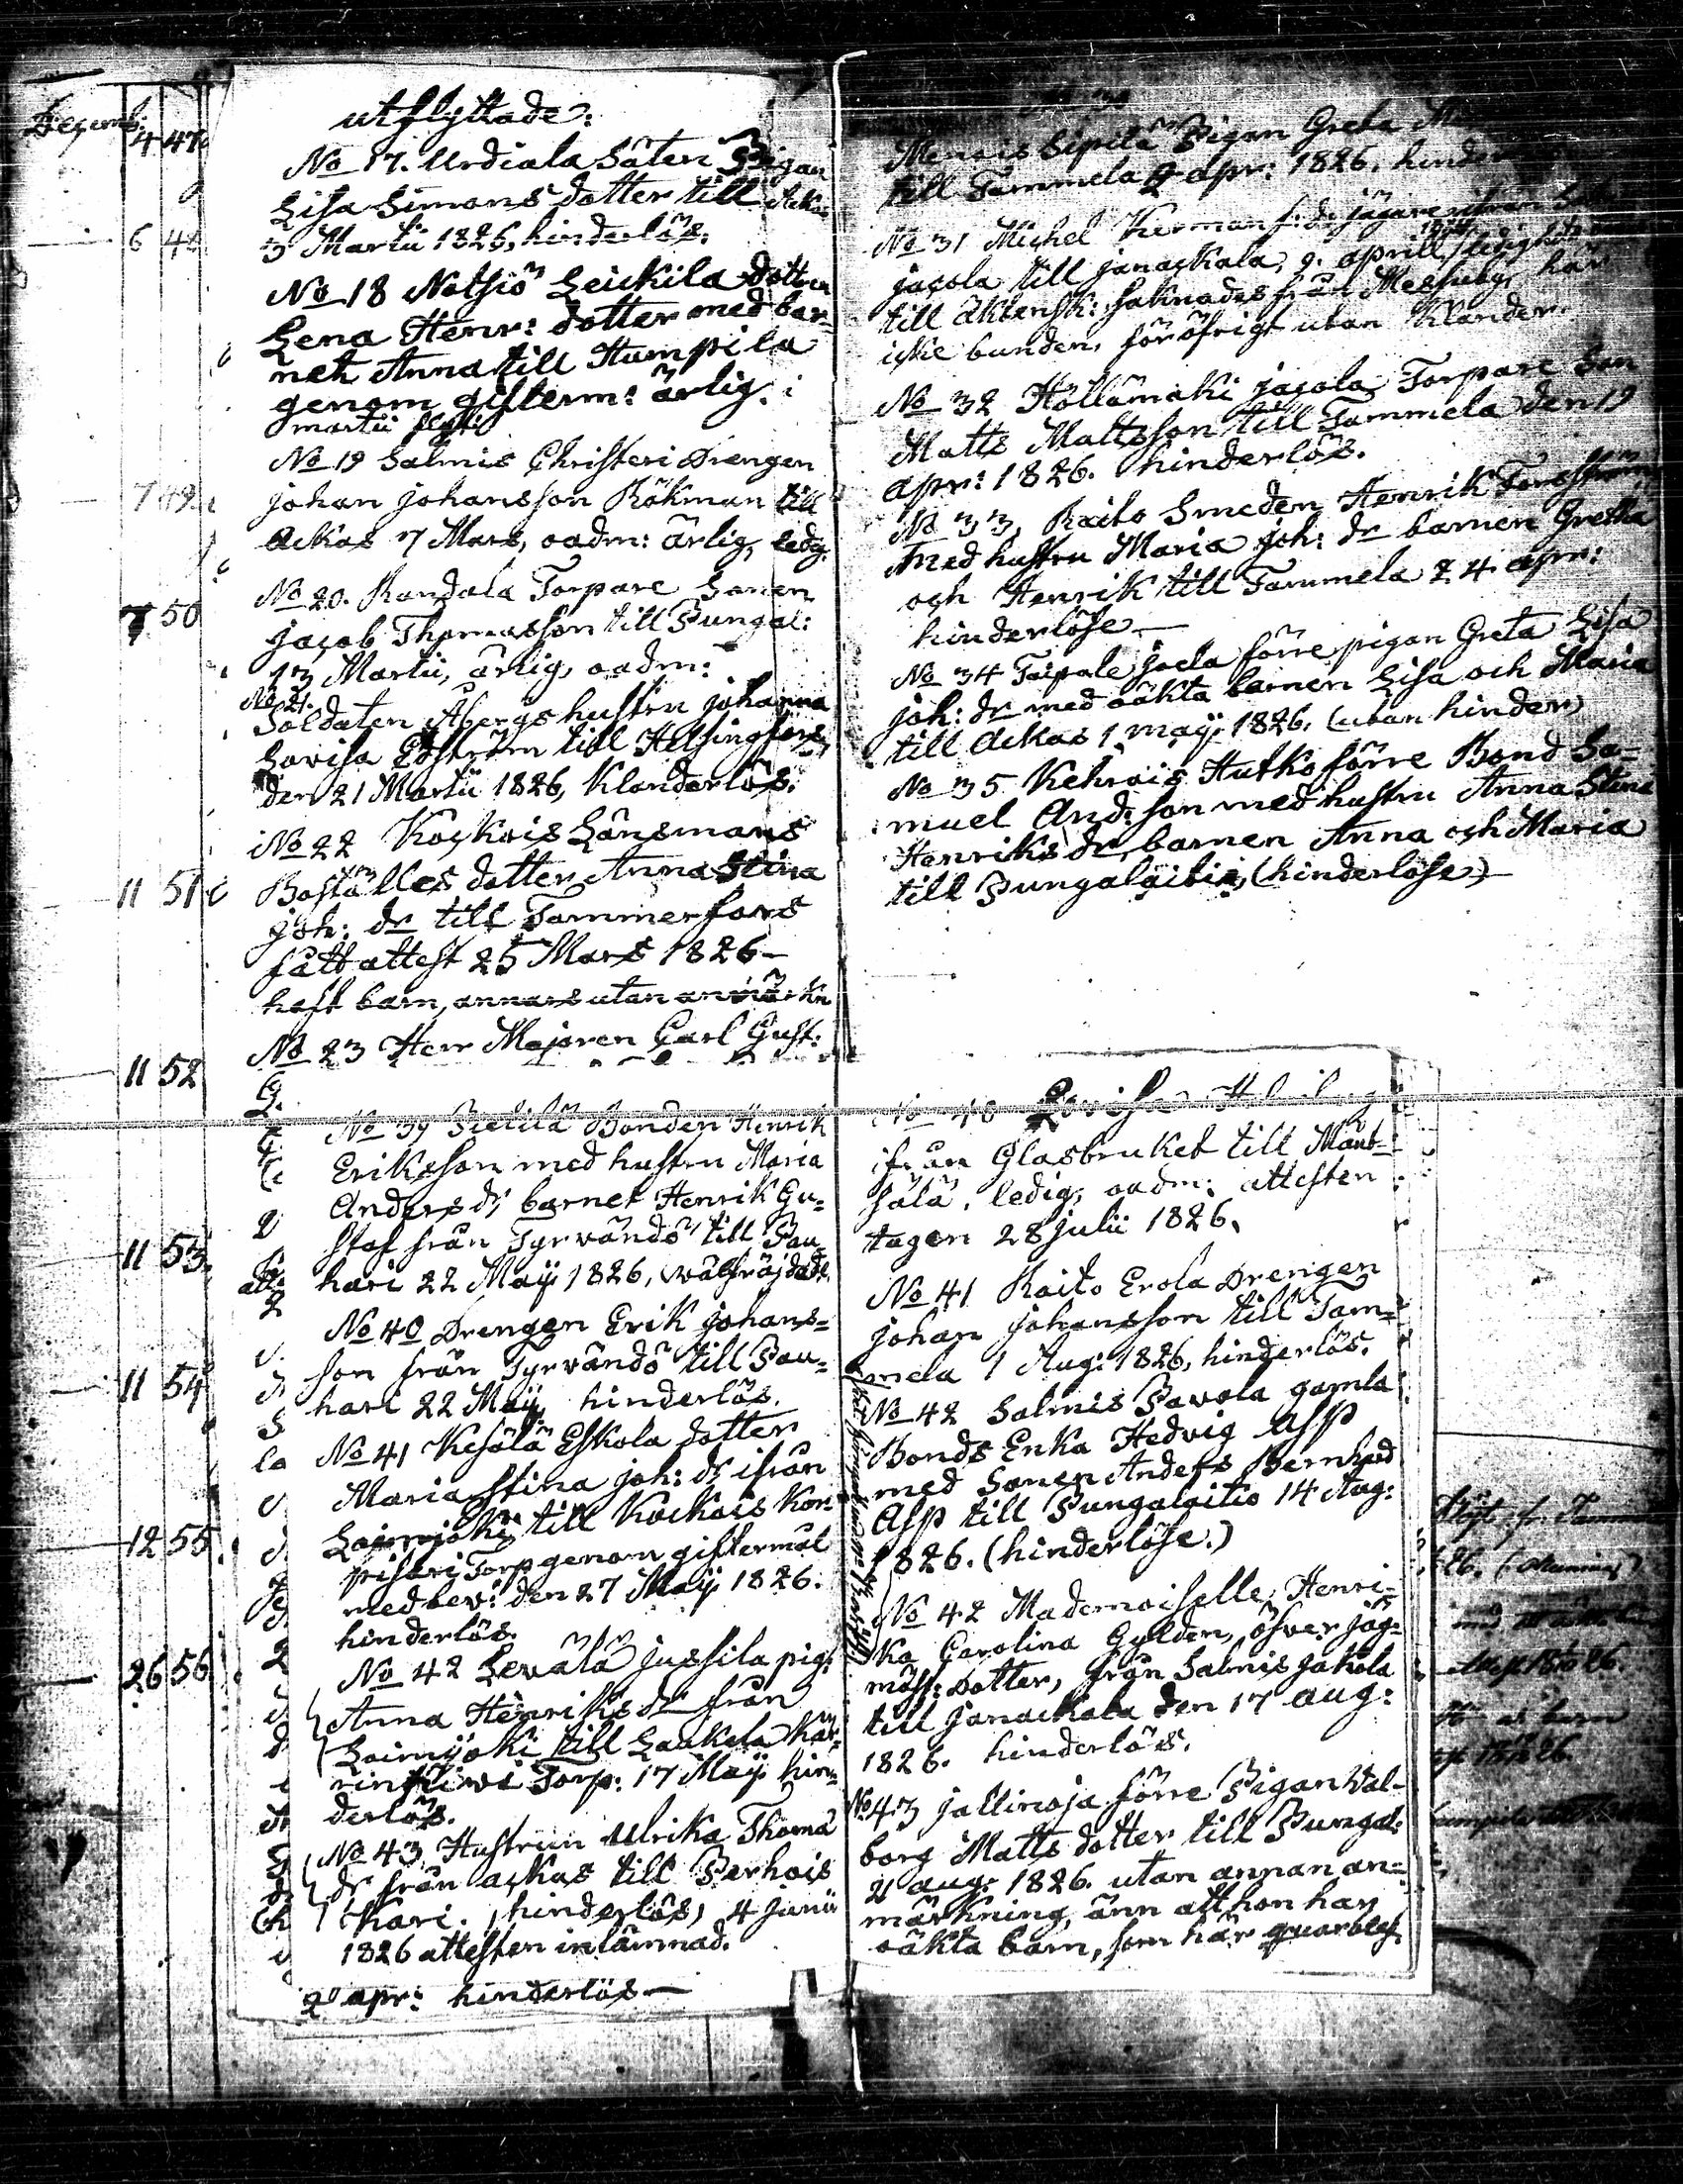 Decemb:
4 47
6 48
7 49
7 50
11 51
11 52
11 53
11 54
12 55
26 56
utflyttade:
No 17. Urdiala Säteri Pigan
Lisa Simons dotter till Ackas
3 Martii 1826, hinderlös.
No 18 Notsiö Leickila dottren
Lena Henr: dotter med bar-
net Anna till Humpila
genom gifterm: ärlig. i
martii
No 19 Salmis Christeri Drengen
johan johansson Rökman till
Ackas 7 Mars, oadm: ärlig, ledig
No 20. Kandala Torpare Sonen
jacob Thomasson till Pungal:
13 Martii, ärlig, oadm:
No 21.
Soldaten Åbergs hustru johanna
Lovisa Edström till Helsingfors,
den 21 Martii 1826, Klanderlös.
No 22 Kåckois Länsmans
Boställes dotter Anna Stina
joh: dr till Tammerfors
fått attest 25 Mars 1826 –
haft barn, annars utan anmärkn
No 23 Herr Majoren Carl Gust:
No 39 Pietilä Bonden Henrik
Eriksson med hustru Maria
Anders dr barnet Henrik Gu=
staf från Tyrvändö till Pau
hari 22 Maji 1826, wälfräjdade
No 40 Drengen Erik johans=
son från Tyrvändö till Pau=
hari 22 Maji, hinderlös.
No 41 Kesälä Eskola dotter
Maria Stina joh: dr ifrån
Loimijoki till Kockois Kor
pistori Torp genom giftermål
med bev: den 27 Maji 1826.
hinderlös.
No 42 Levälä jussila pig:
Anna Henriks dr från
Loimijoki till Laukela
Torp: 17 Maji hin=
derlös.
No 43 Hustrun Ulrika Thoma
dr från ackas till Perhois
Kari. hinderlös, 4 junii
1826 attesten inlämnad.
2 apr: hinderlös —
Menois Sipilä Pigan Greta
till Tammela 2 apr: 1826. hinder
No 31 Michel Kerman f: d: jägare ifrån
jacola till janackala, 9. aprill, ledighet
till äktensk: saknades från
icke bunden, för öfrigt utan Klander.
No 32 Hollämäki jacola Torpare Son
Matts Mattsson till Tammela den 19
apr: 1826. hinderlös.
No 33, Raito Smeden Henrik Forsström
med hustru Maria joh: dr barnen Gretha
och Henrik till Tammela 24 apr:
hinderlöse —
No 34 Taipale Joela förre pigan Greta Lisa
joh: dr med oäkta barnen Lisa och Maria
till Ackas 1 maji 1826. (utan hinder)
No 35 Kehrois Hutko förre Bond Sa=
muel And: son med hustru Anna Stina
Henriks dr, barnen Anna och Maria
till Pungalaitio, (hinderlöse) —
No 40 Lovisa
ifrån Glasbruket till Mänt-
sälä. ledig, oadm: attesten
tagen 28 julii 1826.
No 41 Raito Erola Drengen
johan johansson till Tam=
mela 1 Aug: 1826, hinderlös.
No 42 Salmis Pavola gamla
Bonds Enka Hedvig Asp
med Sonen Anders Bernhard
Asp till Pungalaitio 14 Aug:
1826. (hinderlöse.)
No 42 Mademoiselle, Henri-
ka Carolina Gylden, öfver jäg=
mäst: Dotter, från Salmis jakola
till janackala den 17 aug:
1826. hinderlös.
No 43 jallinoja förre Pigan Wal-
borg Matts dotter till Pungal:
21 aug: 1826. utan annan an=
märkning, änn att hon har
oäkta barn, som här quarblef.